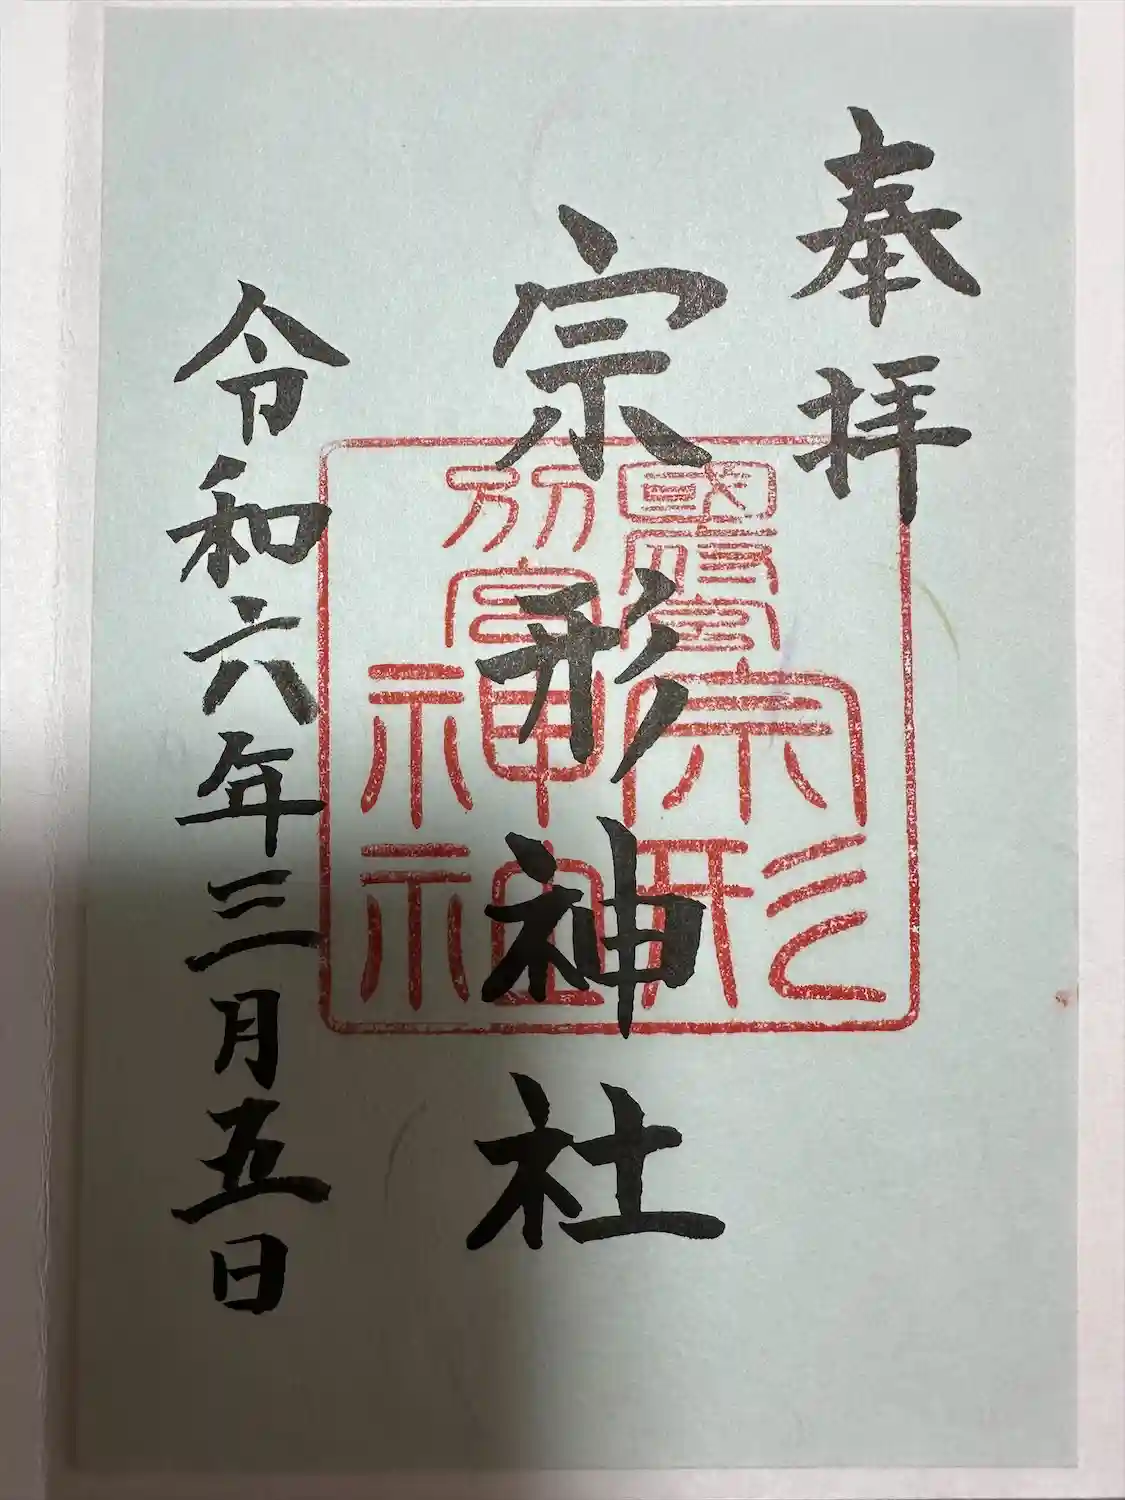 奉拝
宗形神社
令和六年三月五日
宗形
神社